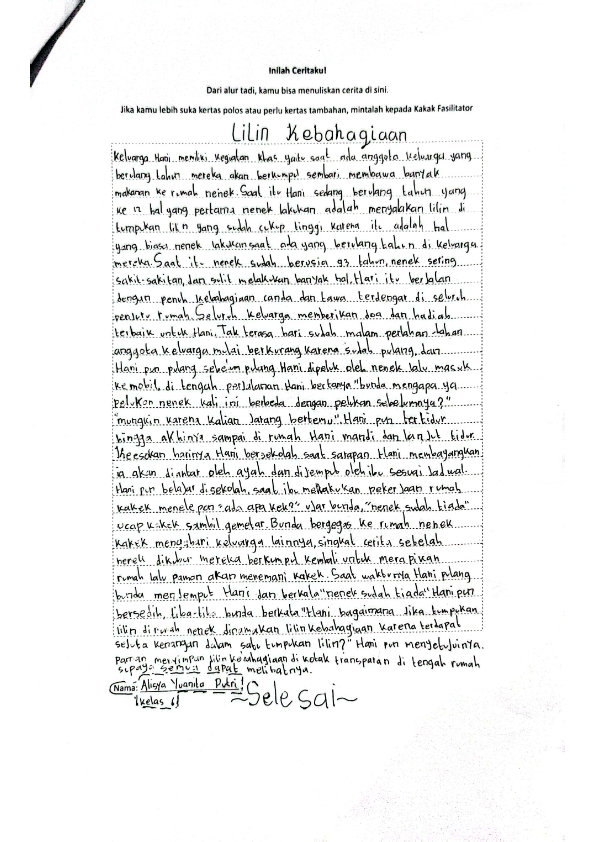 Inilah Ceritaku!
Dari alur tadi, kamu bisa menuliskan cerita di sini.
Jika kamu lebih suka kertas polos atau perlu kertas tambahan, mintalah kepada Kakak Fasilitator
Lilin Kebahagiaan
Keluarga Hani memiliki kegiatan khas yaitu saat ada anggota keluarga yang
berulang tahun mereka akan berkumpul sembari membawa banyak
makanan ke rumah nenek. Saat itu Hani sedang berulang tahun yang
ke 12 hal yang pertama nenek lakukan adalah menyalakan lilin di
tumpukan lilin yang sudah cukup tinggi karena itu adalah hal
yang biasa nenek lakukan saat ada yang berulang tahun di keluarga
mereka. Saat itu nenek sudah berusia 93 tahun, nenek sering
sakit-sakitan, dan sulit melakukan banyak hal. Hari itu berjalan
dengan penuh kebahagiaan canda dan tawa terdengar di seluruh
penjuru rumah. Seluruh keluarga memberikan doa dan hadiah
terbaik untuk Hani. Tak terasa hari sudah malam perlahan-lahan
anggota keluarga mulai berkurang karena sudah pulang, dan
Hani pun pulang sebelum pulang Hani dipeluk oleh nenek lalu masuk
ke mobil, di tengah perjalanan Hani bertanya "bunda mengapa ya
pelukan nenek kali ini berbeda dengan pelukan sebelumnya?"
"mungkin karena kalian jarang bertemu". Hani pun tertidur
hingga akhirnya sampai di rumah Hani mandi dan lanjut tidur.
Keesokan harinya Hani bersekolah saat sarapan Hani membayangkan
ia akan diantar oleh ayah dan dijemput oleh ibu sesuai jadwal.
Hani pun belajar di sekolah, saat ibu melakukan pekerjaan rumah
kakek menelepon "ada apa kek?" ujar bunda, "nenek sudah tiada"
ucap kakek sambil gemetar. Bunda bergegas ke rumah nenek
kakek keluarga lainnya, singkat cerita setelah
nenek dikubur mereka berkumpul kembali untuk merapikan
rumah lalu paman akan menemani kakek. Saat waktunya Hani pulang
bunda menjemput Hani dan berkata "nenek sudah tiada" Hani pun
bersedih, tiba-tiba bunda berkata "Hani bagaimana jika tumpukan
lilin di rumah nenek dinamakan lilin kebahagiaan karena terdapat
sejuta kenangan dalam satu tumpukan lilin?" Hani pun menyetujuinya.
Paman menyimpan lilin kebahagiaan di kotak transparan di tengah rumah
supaya semua dapat melihatnya.
Nama: Alisya Yuanita Putri
kelas 6
~Selesai~